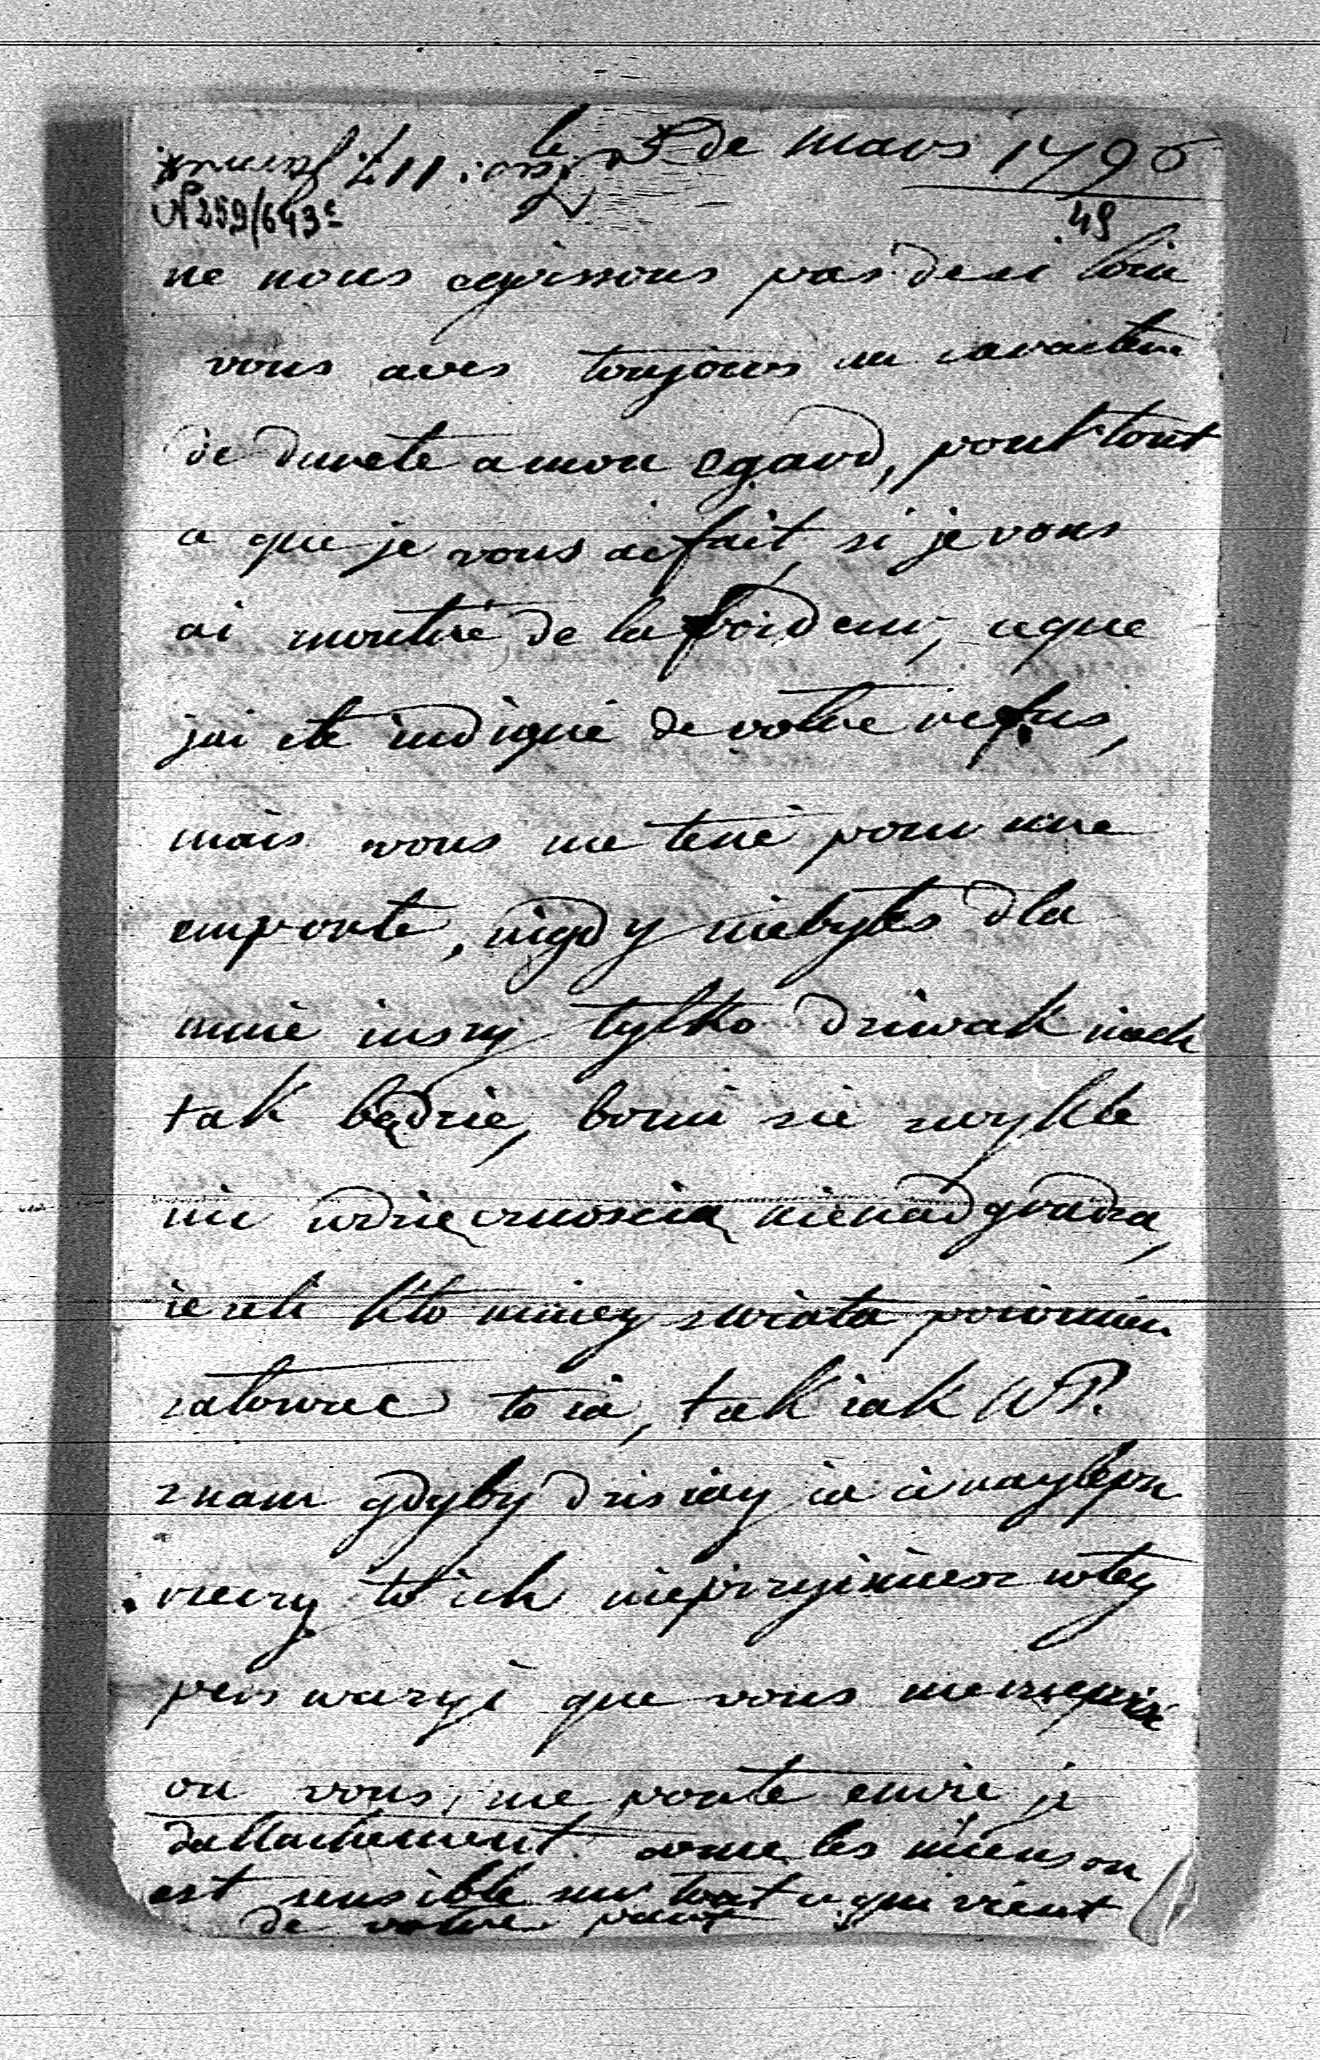 le 5 de mars 1796
N 259/643c
49
ne nous agissons pas de si loin
vous aves toujours un caractere
de durete a mon egard, pour tout
ce que je vous ai fait, si je vous
ai montré de la froideur, ceque
jai ete indigné de votre refus,
mais vous me tené pour une
emporte, nigdy niebyłes dla
mnie inszy tylko dziwak niech
tak będzie, bo mi sie zwykle
nic wdziecznoscia nienadgradza,
iezeli kto mniey swiata powinien
załowac to ia, tak iak WP.
znam gdyby dzisiay ia ci naylepsze
rzeczy to ich nieprzyimiesz w tey
perswazyi que vous me meprisé
ou vous, me porte envie je
dattachement avec les miens on
est sensible sur tout ce qui vient
de votre part